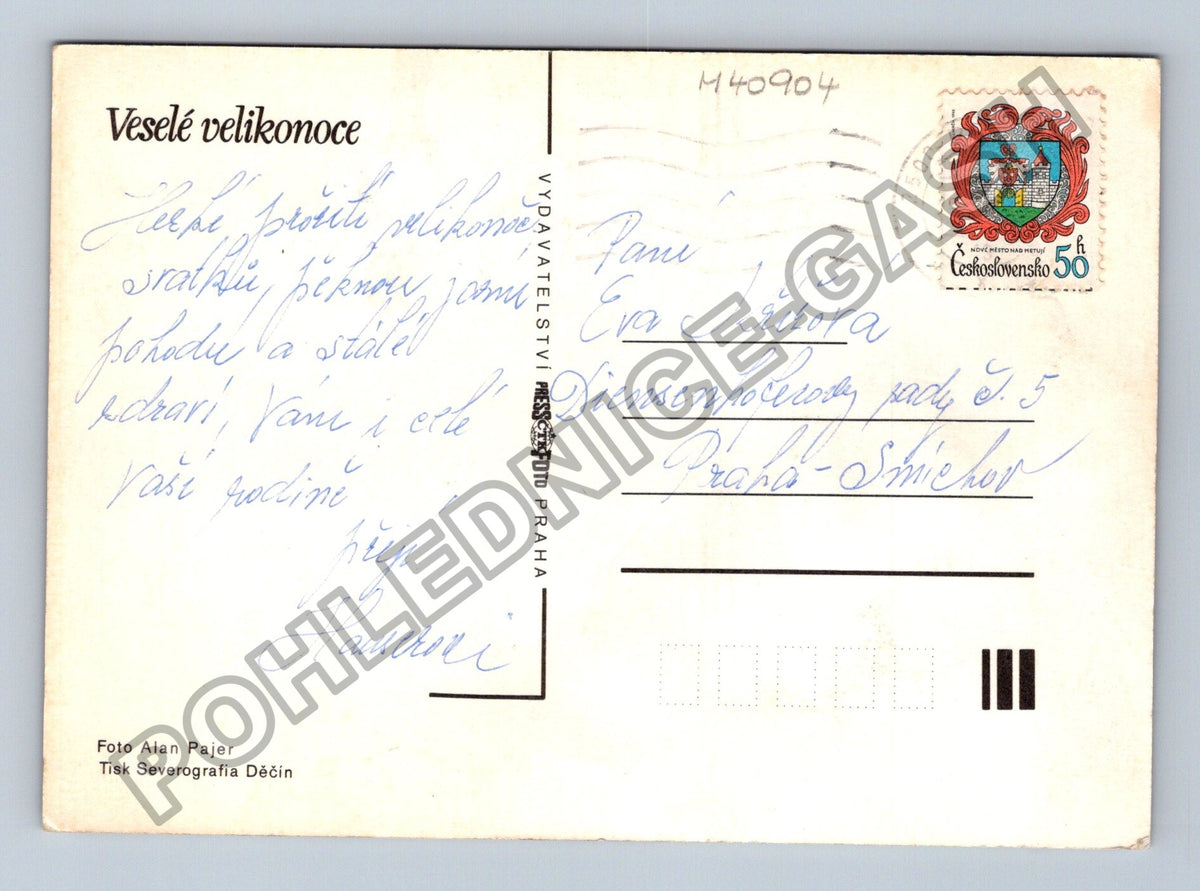 Veselé velikonoce
Hezké prožití velikonoč.
svátků, pěknou jarní
pohodu a stálé
zdraví, Vám i celé
Vaší rodině
přejí
VYDAVATELSTVÍ PRESSFOTO PRAHA
ČTK
Foto Alan Pajer
Tisk Severografia Děčín
M40904
NOVÉ MĚSTO NAD METUJÍ
Československo 50 h
Paní
Eva
sady č. 5
Praha - Smíchov
POHLEDNICE-GASH